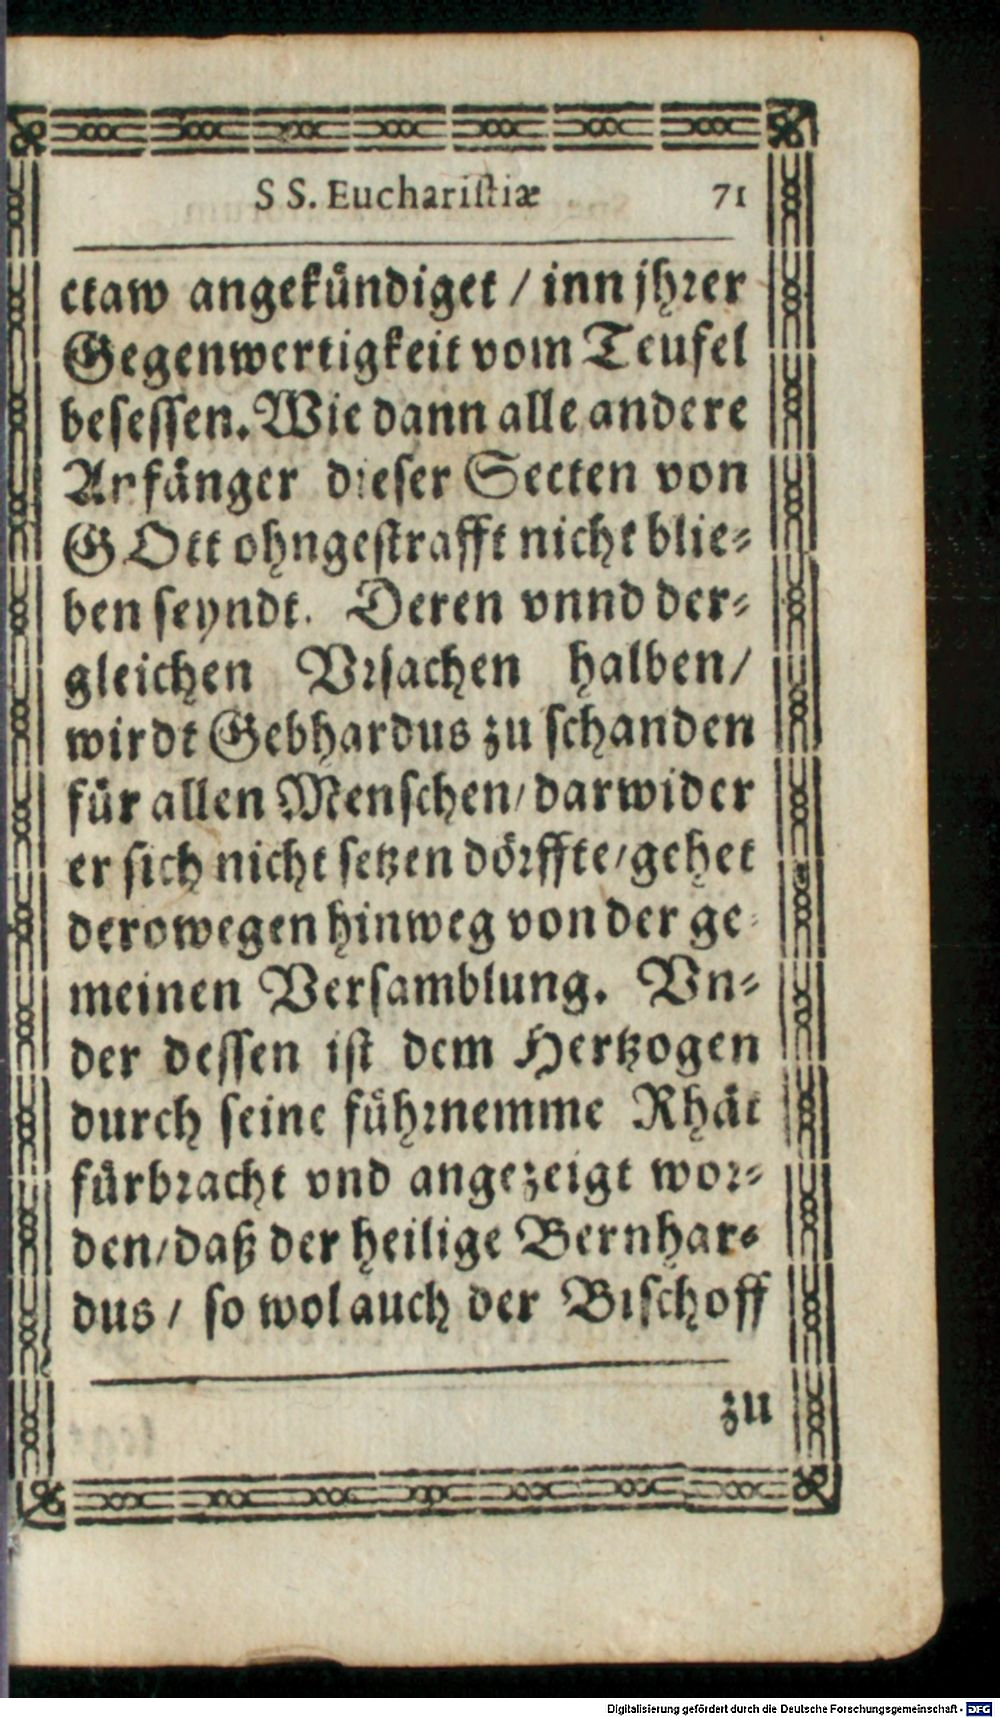 SS. Euchariſtiæ 71
ctaw angekündiget / inn jhrer
Gegenwertigkeit vom Teufel
beſeſſen. Wie dann alle andere
Anfänger dieſer Secten von
GOtt ohngeſtrafft nicht blie⸗
ben ſeyndt. Deren vnnd der⸗
gleichen Vrſachen halben/
wirdt Gebhardus zu ſchanden
für allen Menſchen/ darwider
er ſich nicht ſetzen dörffte/ gehet
derowegen hinweg von der ge⸗
meinen Verſamblung. Vn⸗
der deſſen iſt dem Hertzogen
durch ſeine führnemme Rhät
fürbracht vnd angezeigt wor⸗
den/ daß der heilige Bernhar⸗
dus / ſo wol auch der Biſchoff
zu
Digitalisierung gefördert durch die Deutsche Forschungsgemeinschaft - DFG